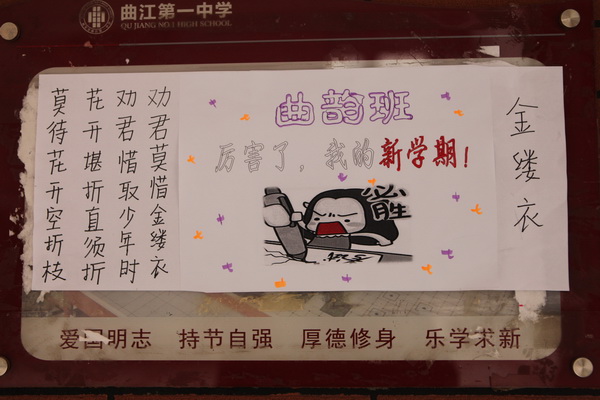 曲江第一中学
QU JIANG NO.1 HIGH SCHOOL
曲韵班
厉害了，我的新学期！
必胜
金缕衣
劝君莫惜金缕衣
劝君惜取少年时
花开堪折直须折
莫待花开空折枝
爱国明志 持节自强 厚德修身 乐学求新